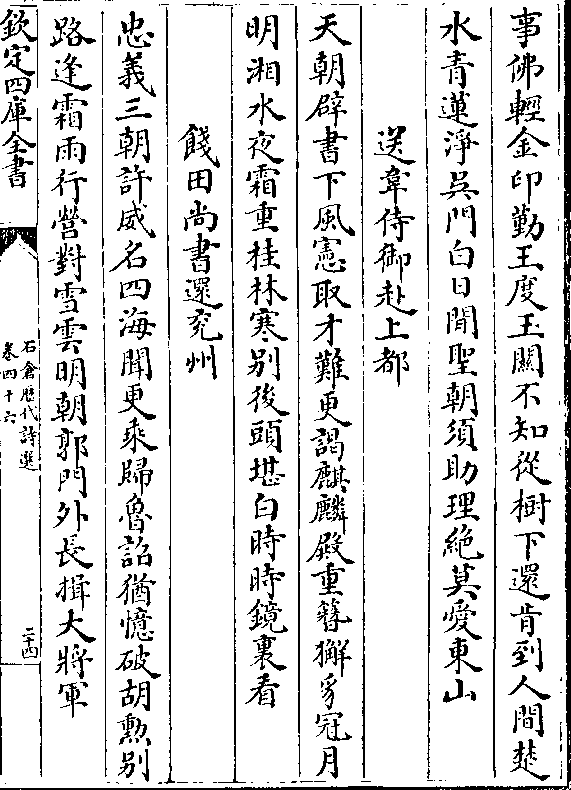 事佛輕金印勤王度玉關不知從樹下還肯到人間楚
水青蓮淨吳門白日閒聖朝須助理絶莫愛東山
送韋侍御赴上都
天朝辟書下風憲取才難更謁麒麟殿重簪獬豸冠月
明湘水夜霜重桂林寒别後頭堪白時時鏡裏看
餞田尚書還兖州
忠義三朝許威名四海聞更乘歸魯詔猶憶破胡勲别
路逢霜雨行營對雪雲明朝郭門外長揖大將軍
欽定四庫全書
石倉歴代詩選
卷四十六
二十四